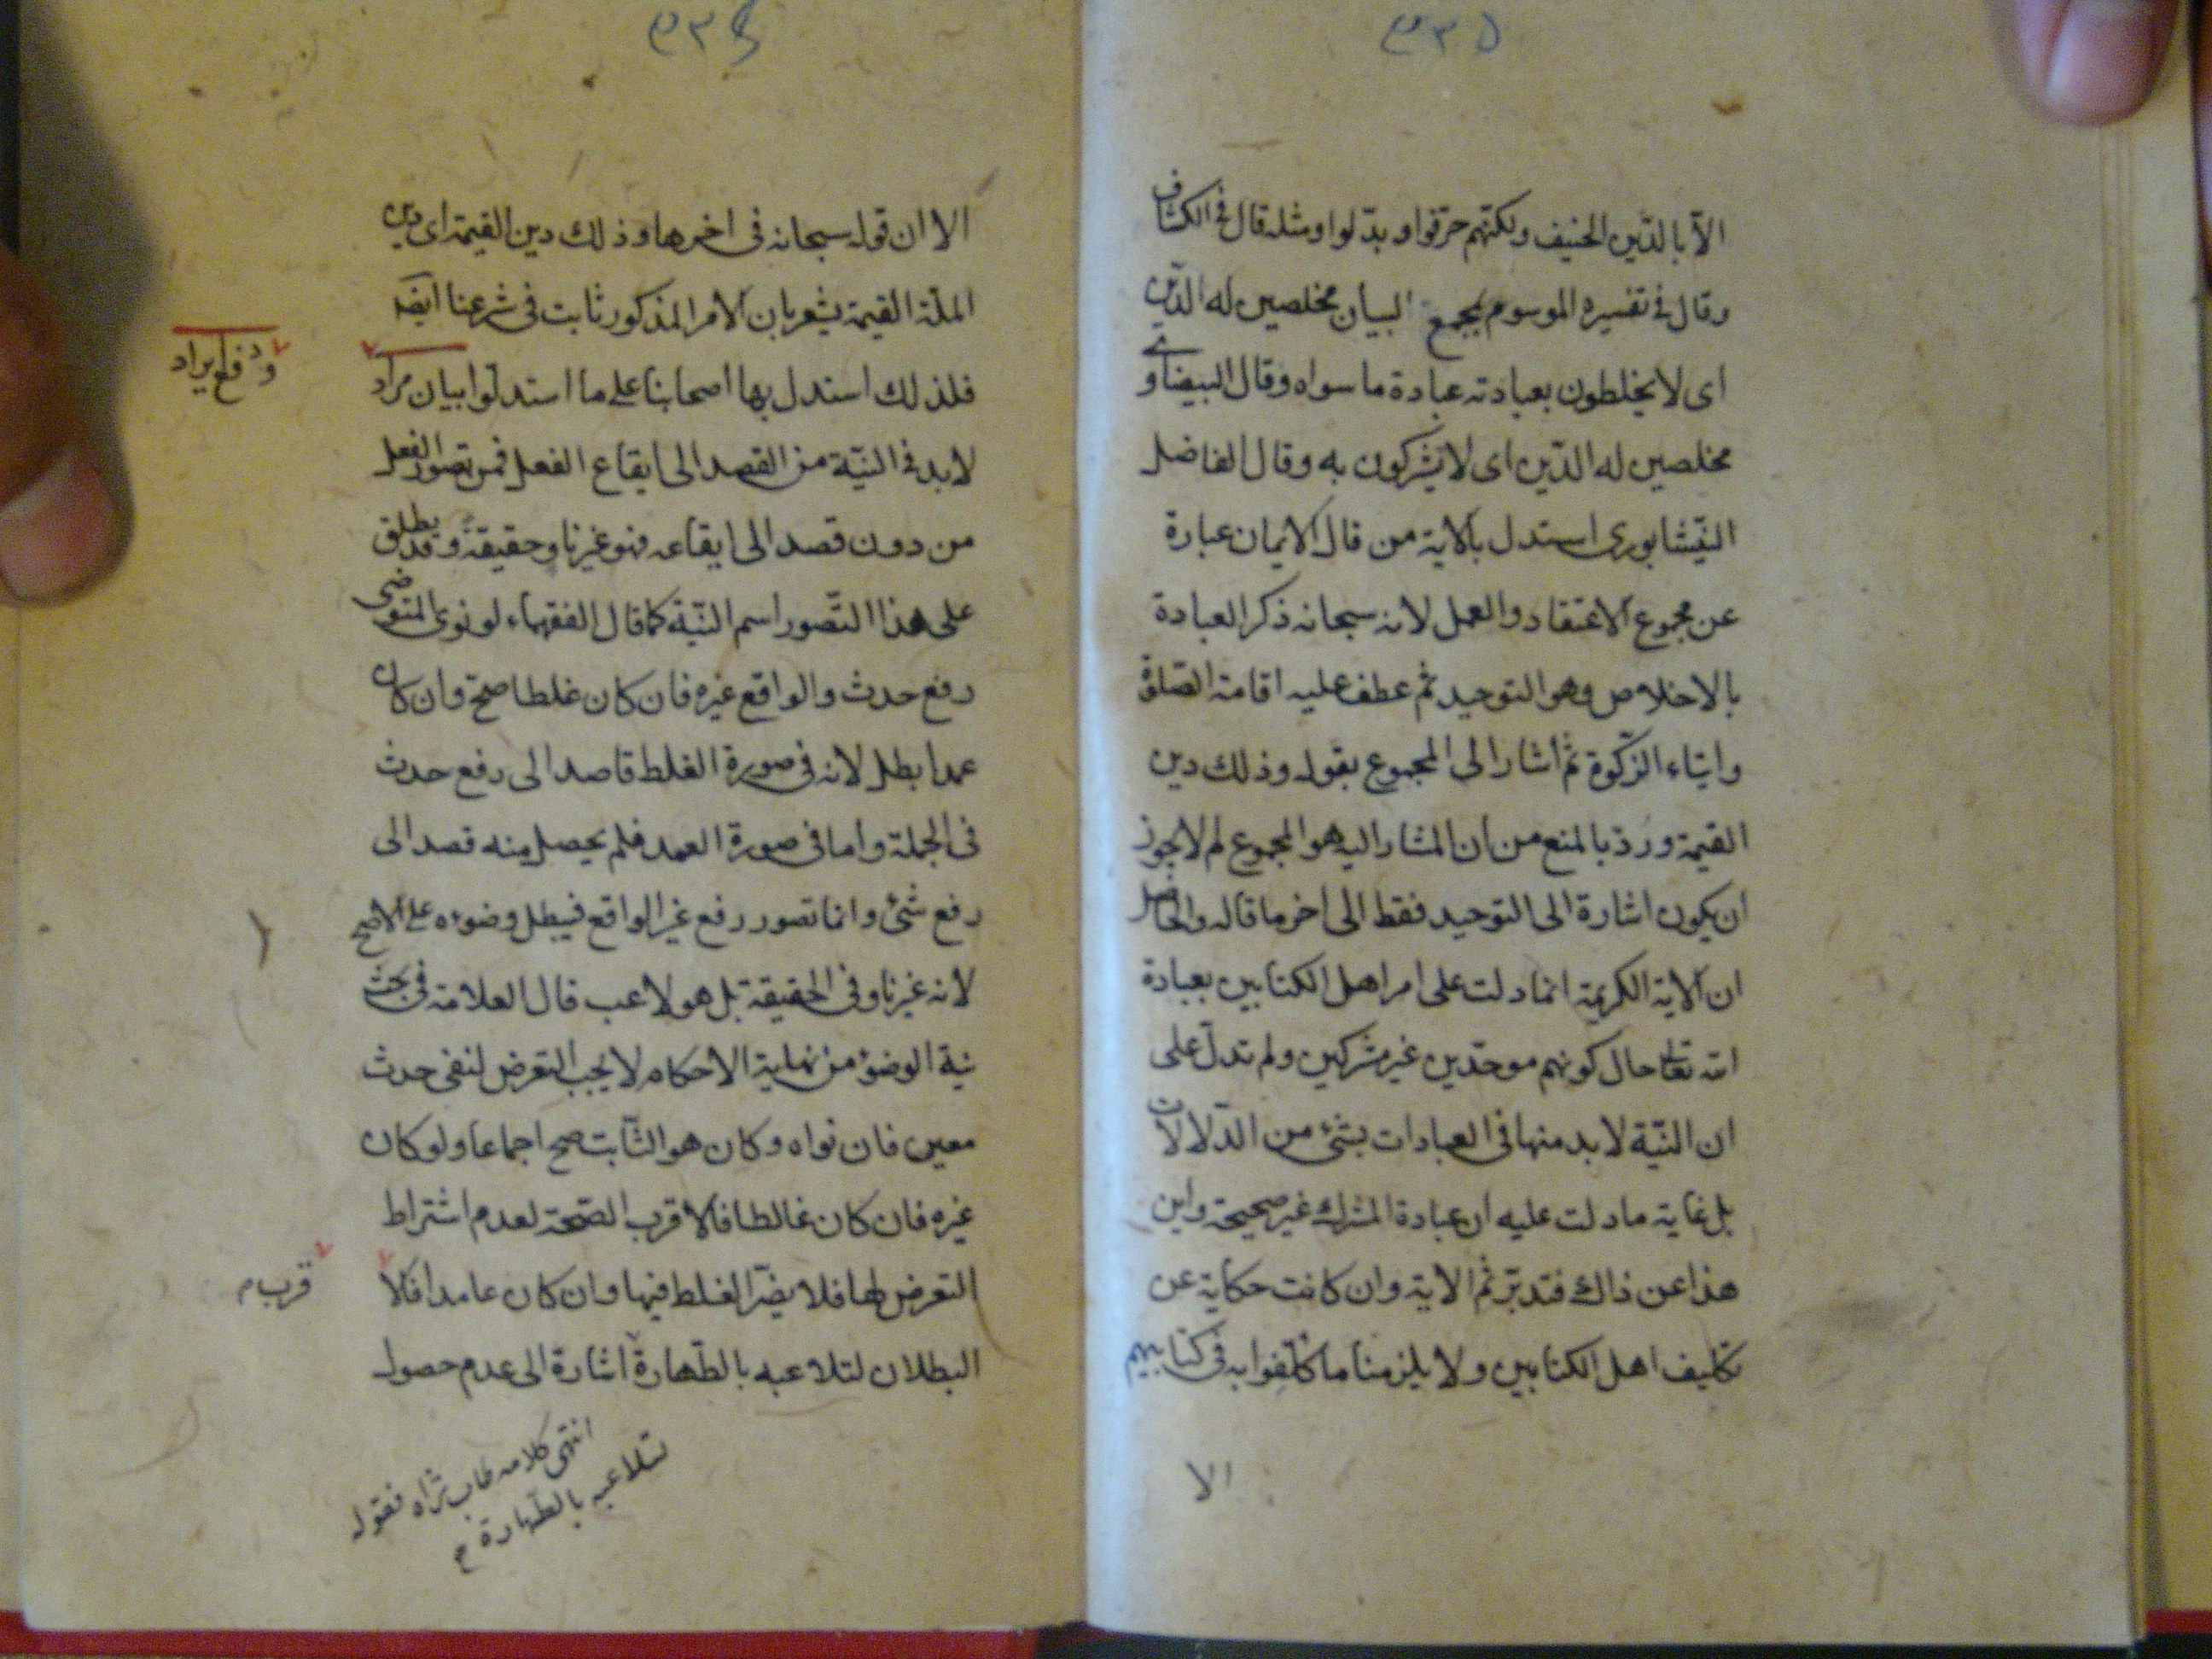 ٣٢٥
الّا بالدّين الحنيف ولكنّهم حرّفوا وبدّلوا ومثله قال فى الكشاف
وقال فى تفسيره الموسوم بمجمع البيان مخلصين له الدّين
اى لا يخلطون بعبادته عبادة ما سواه وقال البيضاوى
مخلصين له الدّين اى لا يشركون به وقال الفاضل
النّيشابورى استدل بالاية من قال الايمان عبارة
عن مجموع الاعتقاد والعمل لانه سبحانه ذكر العبادة
بالاخلاص وهو التوحيد ثم عطف عليه اقامة الصّلوة
وايتاء الزّكوة ثم اشار الى المجموع بقوله وذلك دين
القيمة وردّ بالمنع من ان المشار اليه هو المجموع لم لا يجوز
ان يكون اشارة الى التوحيد فقط الى اخر ما قاله والحاصل
ان الاية الكريمة انما دلت على امر اهل الكتابين بعبادة
الله تعالى حال كونهم موحّدين غير مشركين ولم تدلّ على
ان النيّة لا بد منها فى العبادات بشئ من الدّلالات
بل غاية ما دلت عليه ان عبادة المشرك غير صحيحة واين
هذا عن ذاك فتدبّر ثم الاية وان كانت حكاية عن
تكليف اهل الكتابين ولا يلزمنا ما كلّفوا به فى كتابيهم
الا
الا ان قوله سبحانه فى اخرها وذلك دين القيمة اى دين
الملّة القيمة يشعر بان الامر المذكور ثابت فى شرعنا ايضا
فلذلك استدل بها اصحابنا على ما استدلّوا بيان مراد
ودفع ايراد
لا بد فى النيّة من القصد الى ايقاع الفعل فمن تصور الفعل
من دون قصد الى ايقاعه فهو غير ناو حقيقة وقد يطلق
على هذا التّصور اسم النيّة كما قال الفقهاء لو نوى المتوضى
رفع حدث والواقع غيره فان كان غلطا صح وان كان
عمدا بطل لانه فى صورة الغلط قاصد الى رفع حدث
فى الجملة واما فى صورة العمد فلم يحصل منه قصد الى
رفع شئ وانما تصور رفع غير الواقع فيبطل وضوءه على الاصح
لانه غير ناو فى الحقيقة بل هو لاعب قال العلامة فى بحث
نية الوضوء من نهاية الاحكام لا يجب التعرض لنفى حدث
معين فان نواه وكان هو الثّابت صح اجماعا ولو كان
غيره فان كان غالطا فالاقرب الصّحة لعدم اشتراط
التعرض لها فلا يضرّ الغلط فيها وان كان عامدا فالا
قرب م
البطلان لتلاعبه بالطّهارة اشارة الى عدم حصول
انتهى كلامه طاب ثراه فقوله
لتلاعبه بالطّهارة م